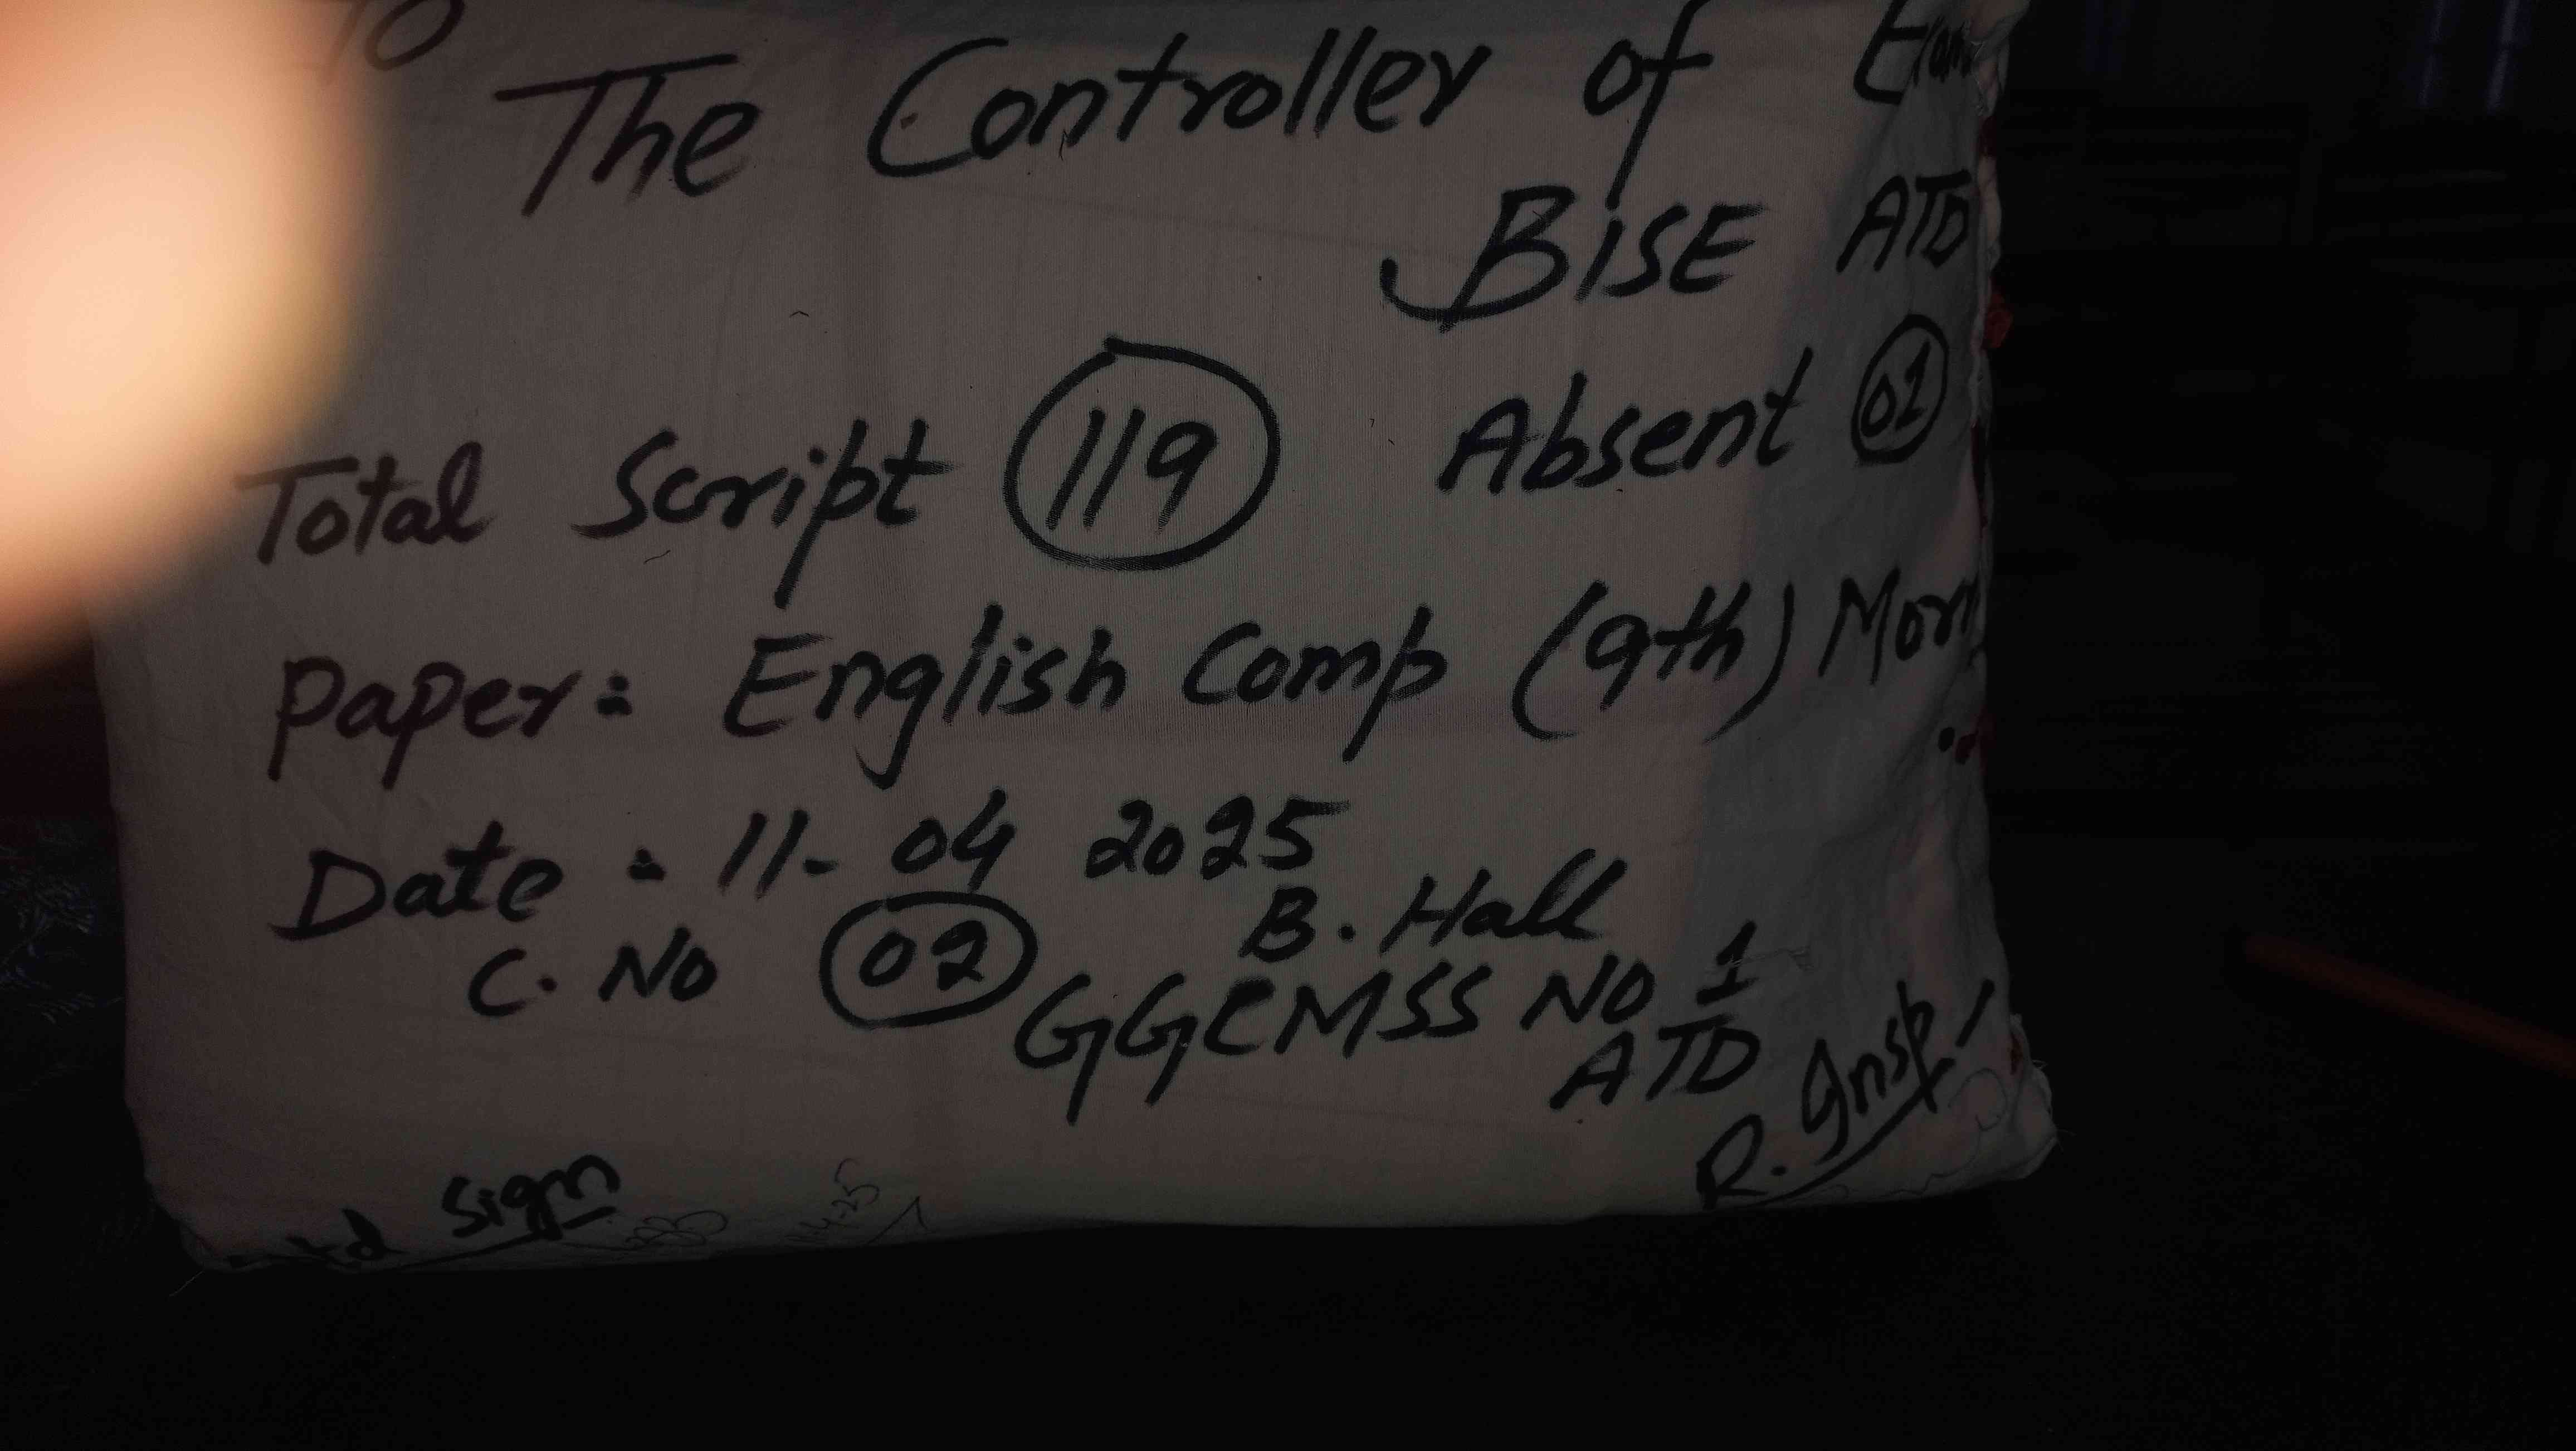 To
The Controller of Exam
BISE ATD
Total Script 119 Absent 01
Paper: English Comp (9th) Morn
Date : 11- 04 2025
C. No 02 B. Hall
GGCMSS NO 1
ATD
R. Insp
Sign